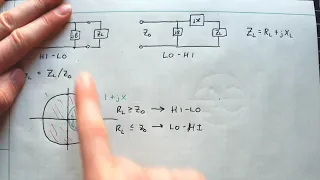 jX
jB
Z_L
Z_0
jB
Z_L
Z_L = R_L + jX_L
HI-LO
LO-HI
_L = Z_L/Z_0
1+jX
R_L ≥ Z_0 → HI-LO
R_L ≤ Z_0 → LO-HI